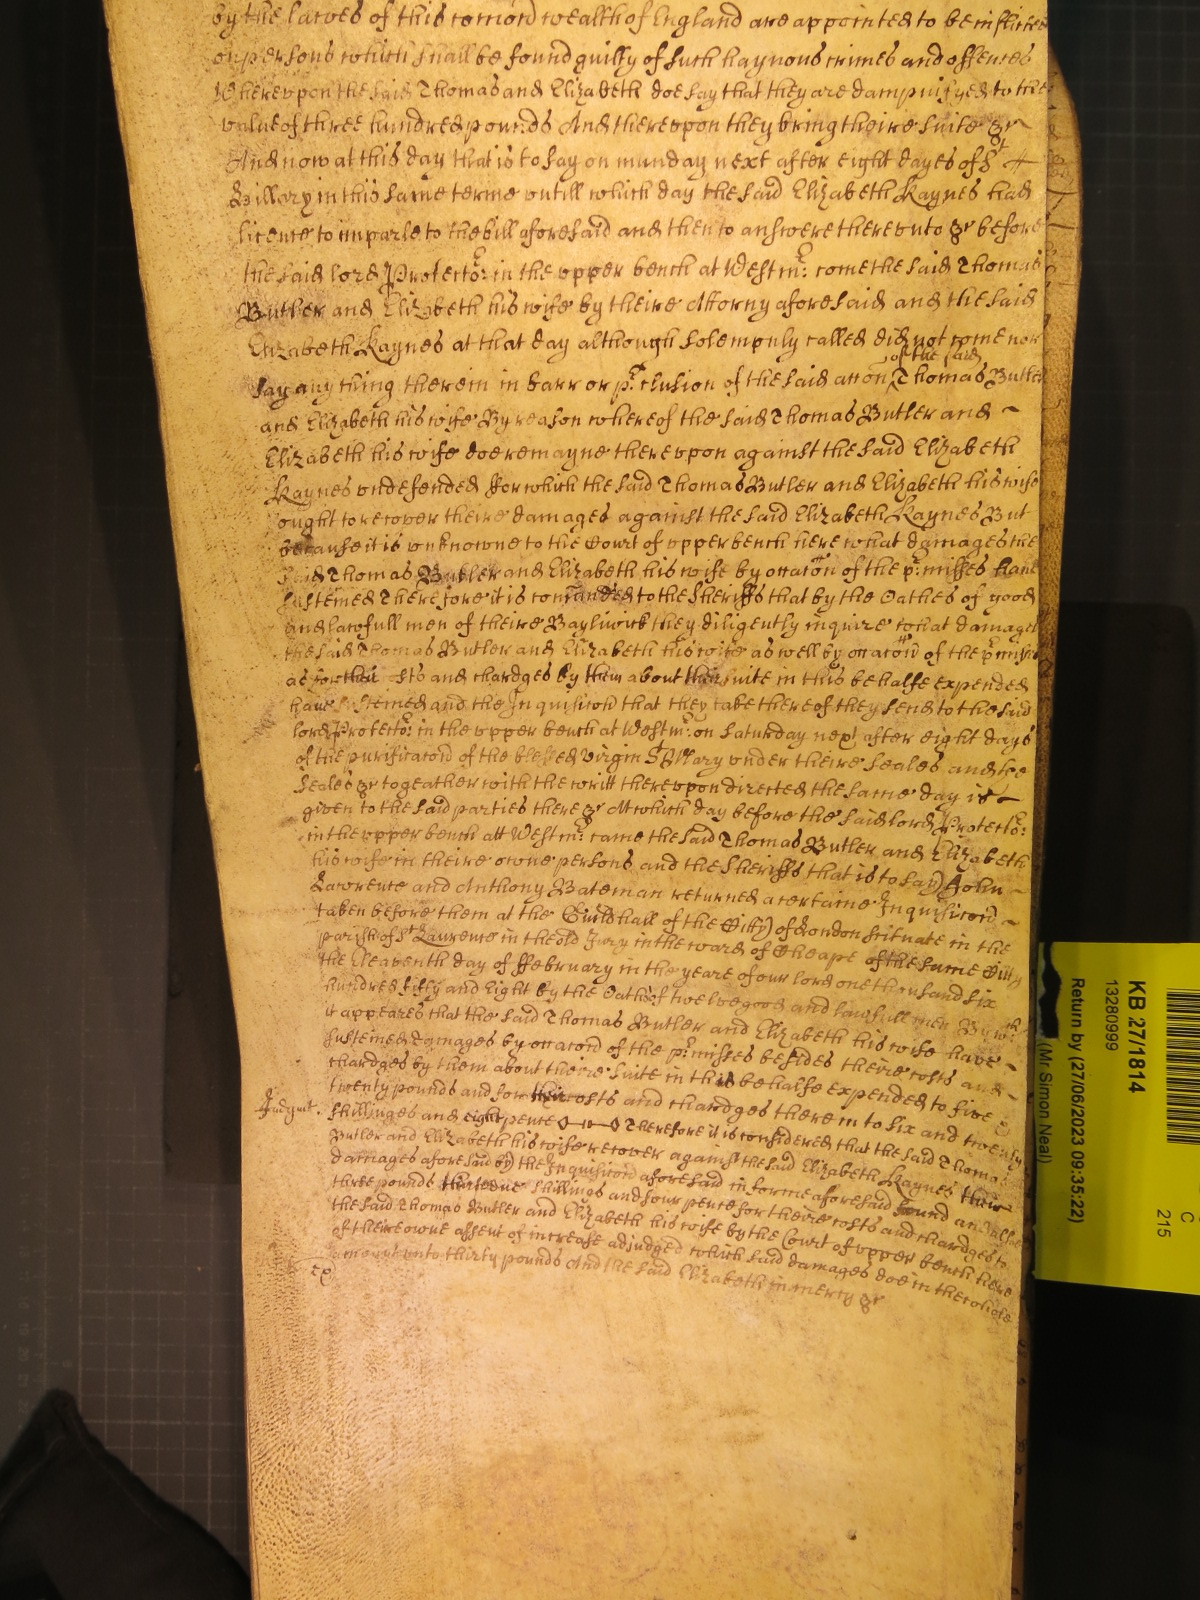 by the lawes of this comon wealth of England are appointed to be inflicted
on persons which shall be found guilty of such haynous crimes and offences
Wherevpon the said Thomas and Elizabeth doe say that they are dampnifyed to the
value of three hundred pounds And therevpon they bring theire suite &c
And now at this day that is to say on munday next after eight dayes of St
Hillary in this same terme vntill which day the said Elizabeth Kaynes had
licence to imparle to the bill aforesaid and then to answere therevnto &c before
the said lord Protector: in the vpper bench at Westmr: come the said Thomas
Butler and Elizabeth his wife by theire Attorny aforesaid and the said
Elizabeth Kaynes at that day although solempnly called did not come nor
of the said
say any thing therein in barr or preclusion of the said accon Thomas Butler
and Elizabeth his wife By reason whereof the said Thomas Butler and
Elizabeth his wife doe remayne therevpon against the said Elizabeth
Kaynes vndefended ffor which the said Thomas Butler and Elizabeth his wife
ought to recover theire damages against the said Elizabeth Kaynes But
because it is vnknowne to the Court of vpper bench here what damages the
said Thomas Butler and Elizabeth his wife by occacon of the pr:misses have
susteined Therefore it is comanded to the Sheriffs that by the Oathes of good
and lawfull men of theire Baylwick they diligently inquire what damages
the said Thomas Butler and Elizabeth his wife as well by occacon of the pr:misses
as for their costs and chardges by them about their suite in this behalfe expended
have susteined and the Inquisicon that they take thereof they send to the said
lord Protector: in the vpper bench at Westmr: on Saturday next after eight days
of the purificacon of the blessed virgin St Mary vnder theire Seales and the
Seales &c togeather with the writt therevpon directed the same day is
given to the said parties there &c At which day before the said lord Protector:
in the vpper bench att Westmr: came the said Thomas Butler and Elizabeth
his wife in theire owne persons and the Sheriffs that is to say John
Lawrence and Anthony Bateman returned a certaine Inquisicon
taken before them at the Guildhall of the Citty of London scituate in the
parish of St Laurence in the old Jury in the ward of Cheape of the same Citty
the Eleaventh day of ffebruary in the yeare of our lord one thousand six
hundred fifty and Eight by the Oath of twelve good and lawfull men By wch:
it appeares that the said Thomas Butler and Elizabeth his wife have
susteined damages by occacon of the pr:misses besides theire costs and
chardges by them about theire suite in this behalfe expended to five &
twenty pounds and for their costs and chardges therein to six and twenty
Judgmt. shillinges and eight pence Therefore it is considered that the said Thomas
Butler and Elizabeth his wife recover against the said Elizabeth Kaynes their
damages aforesaid by the Inquisicon aforesaid in forme aforesaid found and alsoe
three pounds thirteene shillings and four pence for theire costs and chardges to
the said Thomas Butler and Elizabeth his wife by the Court of vpper bench here
of theire owne assent of increase adjudged which said damages doe in the whole
amount vnto thirty pounds And the said Elizabeth in mercy &c
KB 27/1814
13280999
Return by (27/06/2023 09:35:22)
(Mr Simon Neal)
C
215